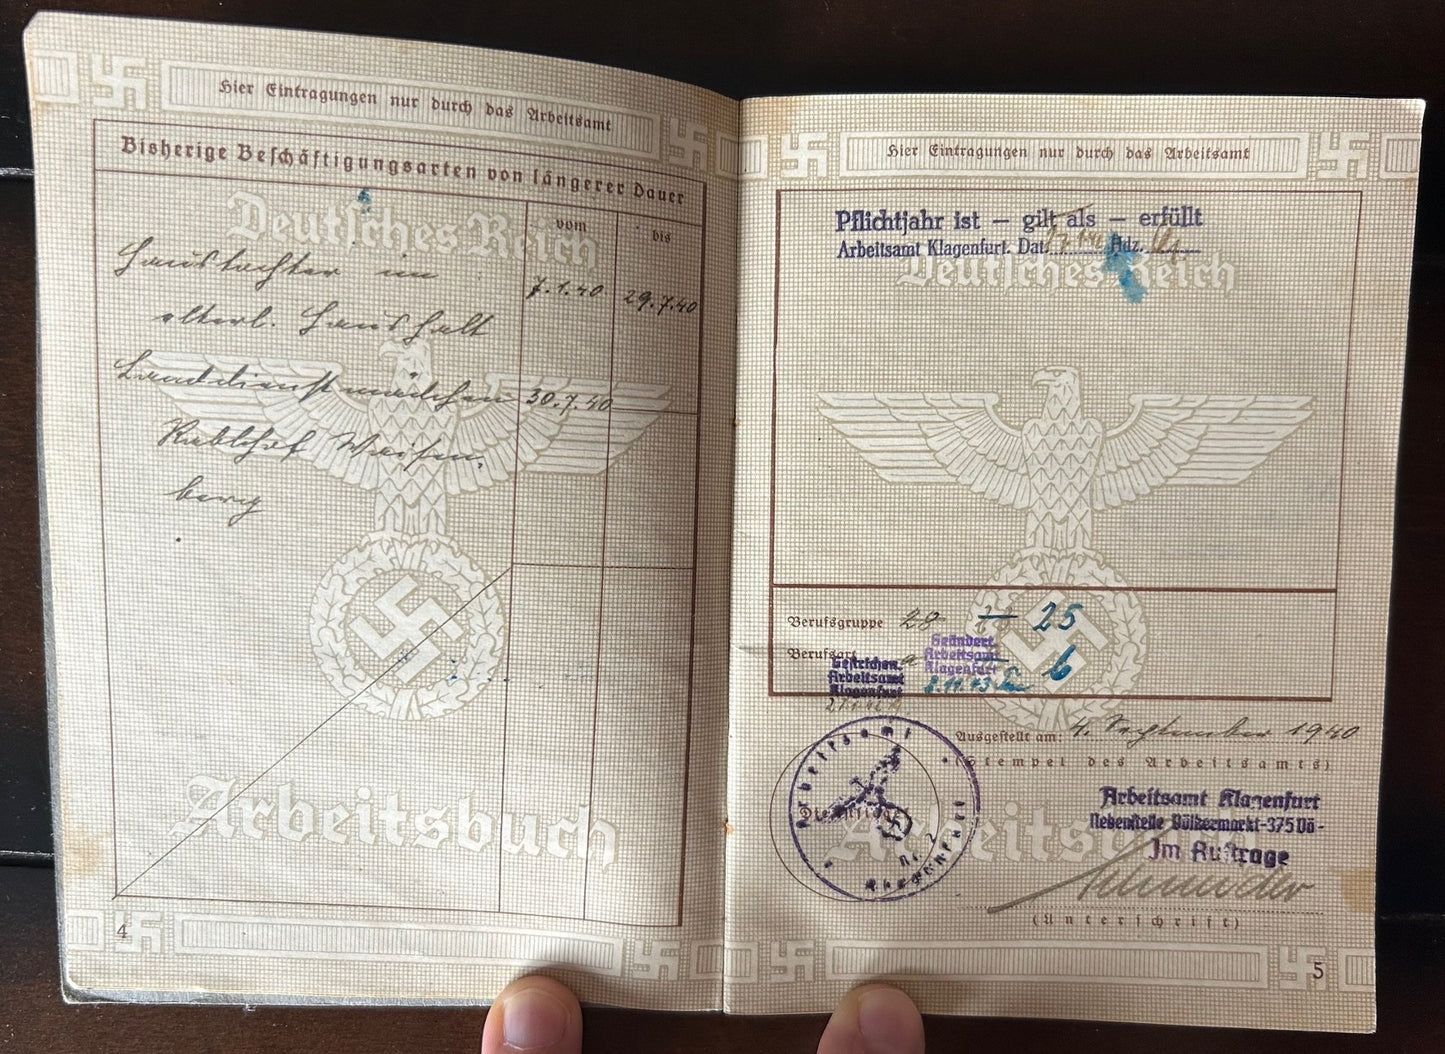 Hier Eintragungen nur durch das Arbeitsamt
Bisherige Beschäftigungsarten von längerer Dauer
vom
bis
Deutsches Reich
Haustochter im
7.1.40
29.7.40
elterl. Haushalt
Landdienstmädchen
30.7.40
Weisen-
berg
Arbeitsbuch
4
Hier Eintragungen nur durch das Arbeitsamt
Pflichtjahr ist – gilt als – erfüllt
Arbeitsamt Klagenfurt. Dat. Hdz.
Deutsches Reich
Berufsgruppe 28 25
Geändert
Berufsart a Arbeitsamt 6
Gestrichen Klagenfurt
Arbeitsamt 2.11.43
Klagenfurt
Ausgestellt am: 4. September 1940
(Stempel des Arbeitsamts)
Arbeitsamt
Nr. 2
Klagenfurt
Arbeitsamt Klagenfurt
Nebenstelle Völkermarkt-375 Vö-
Im Auftrage
Arbeitsbuch
(Unterschrift)
5